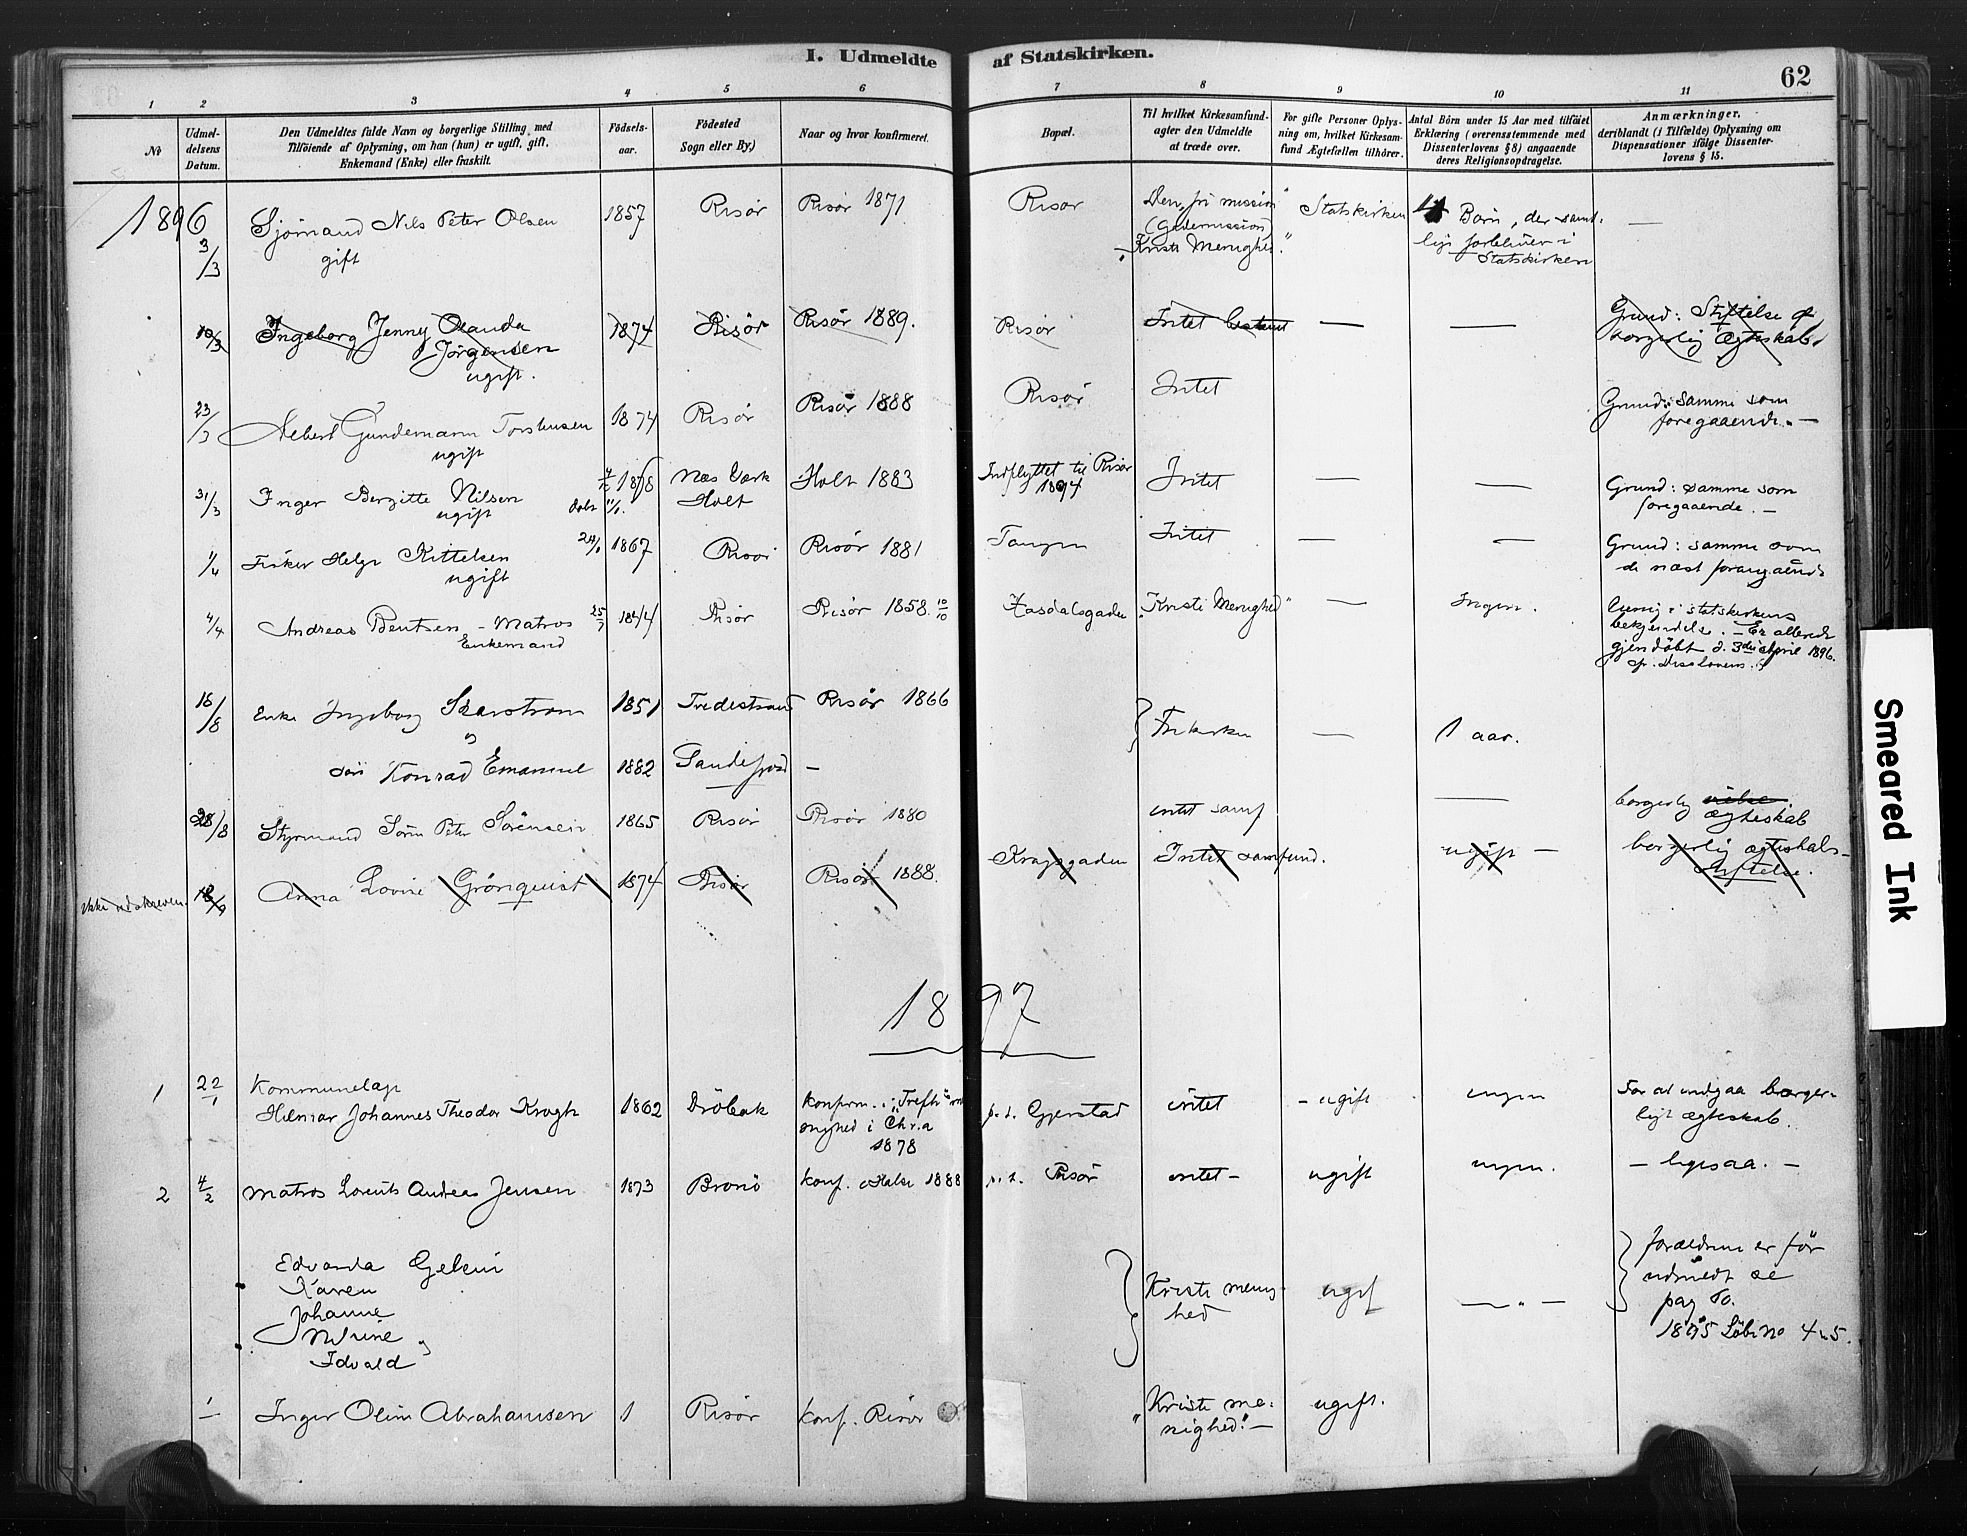 I. Udmeldte af Statskirken.
62
1 2 3 4 5 6 7 8 9 10 11
No
Udmel-
delsens
Datum.
Den Udmeldtes fulde Navn og borgerlige Stilling, med
Tilföiende af Oplysning, om han (hun) er ugift, gift,
Enkemand (Enke) eller fraskilt.
Födsels-
aar.
Födested
Sogn eller By,)
Naar og hvor konfirmeret.
Bopæl.
Til hvilket Kirkesamfund-
agter den Udmeldte
at træde over.
For gifte Personer Oplys-
ning om, hvilket Kirkesam-
fund Ægtefællen tilhörer.
Antal Börn under 15 Aar med tilföiet
Erklæring (overensstemmende med
Dissenterlovens § 8) angaaende
deres Religionsopdragelse.
Anmærkninger,
deriblandt (i Tilfælde) Oplysning om
Dispensationer ifölge Dissenter-
lovens § 15.
1896
3/3
Sjömand Nils Peter Olsen
gift
1857
Risör
Risör 1871
Risör
Den "fri mission"
(Gademission)
"Kristi Menighed".
Statskirken
Börn, der samt-
lige forbliver i
Statskirken
—
10/3
Ingeborg Jenny Olanda
Jörgensen
ugift.
1874
Risör
Risör 1889.
Risör
Intet bestemt
—
—
Grund: Stiftelse af
borgerlig Ægteskab.
23/3
Albert Gundemann Torstensen
ugift
1874
Risör
Risör 1888
Risör
Intet
Grund: samme som
foregaaende. —
31/3
Inger Bergitte Nilsen
ugift
döbt
1878
Næs Værk
Holt
Holt 1883
Indflyttet til Risör
1894
Intet
—
—
Grund: samme som
foregaaende. —
1/4
Fisker Helge Kittelsen
ugift
24/1 1867
Risör
Risör 1881
Tangen
Intet
—
—
Grund: samme som
de næst foregaaende
4/4
Andreas Bentsen - Matros
Enkemand
25/7 1844
Risör
Risör 1858 10/10
Hasdalsgaden
"Kristi Menighed"
—
Ingen.
Uenig i statskirkens
bekjendelse. — Er allerede
gjendöbt d. 3die april 1896.
18/8
Enke Ingeborg Skarstrøm
og
1851
Tvedestrand
Risör 1866
Frikirken
—
1 aar.
sön Konrad Emanuel
1882
Sandefjord
—
28/8
Styrmand Sören Peter Sörensen
1865
Risör
Risör 1880
intet samf
—
borgerlig vielse.
ægteskab
ikke udskreven.
18/9
Anna Lovise Grönquist
1874
Risör
Risör 1888.
Kragsgaden
Intet samfund.
ugift —
borgerlig ægteskabs-
stiftelse.
1897
1
22/1
Kommunelæge
Hilmar Johannes Theodor Krogh
1862
Dröbak
konfirm. i "Trefh. me-
nighed i Chr.a
1878
p.t. Gjerstad
intet
- ugift
ingen
For at indgaa borger-
ligt ægteskab.
2
4/2
Matros Lorents Andreas Jensen
1873
Brönö
konf. i Halse 1888
p.t. Risör
intet -
ugift
ingen.
— ligesaa. —
Edvarda
Karen
Johanne
og
Idvald
Kristi menig-
hed
ugift
— " —
forældrene er för
udmeldt se
pag 60.
1895 Löbe No 4 & 5.
Inger Oline Abrahamsen
1
Risör
konf. Risör
"Kristi me-
nighed". —
ugift.
Smeared Ink